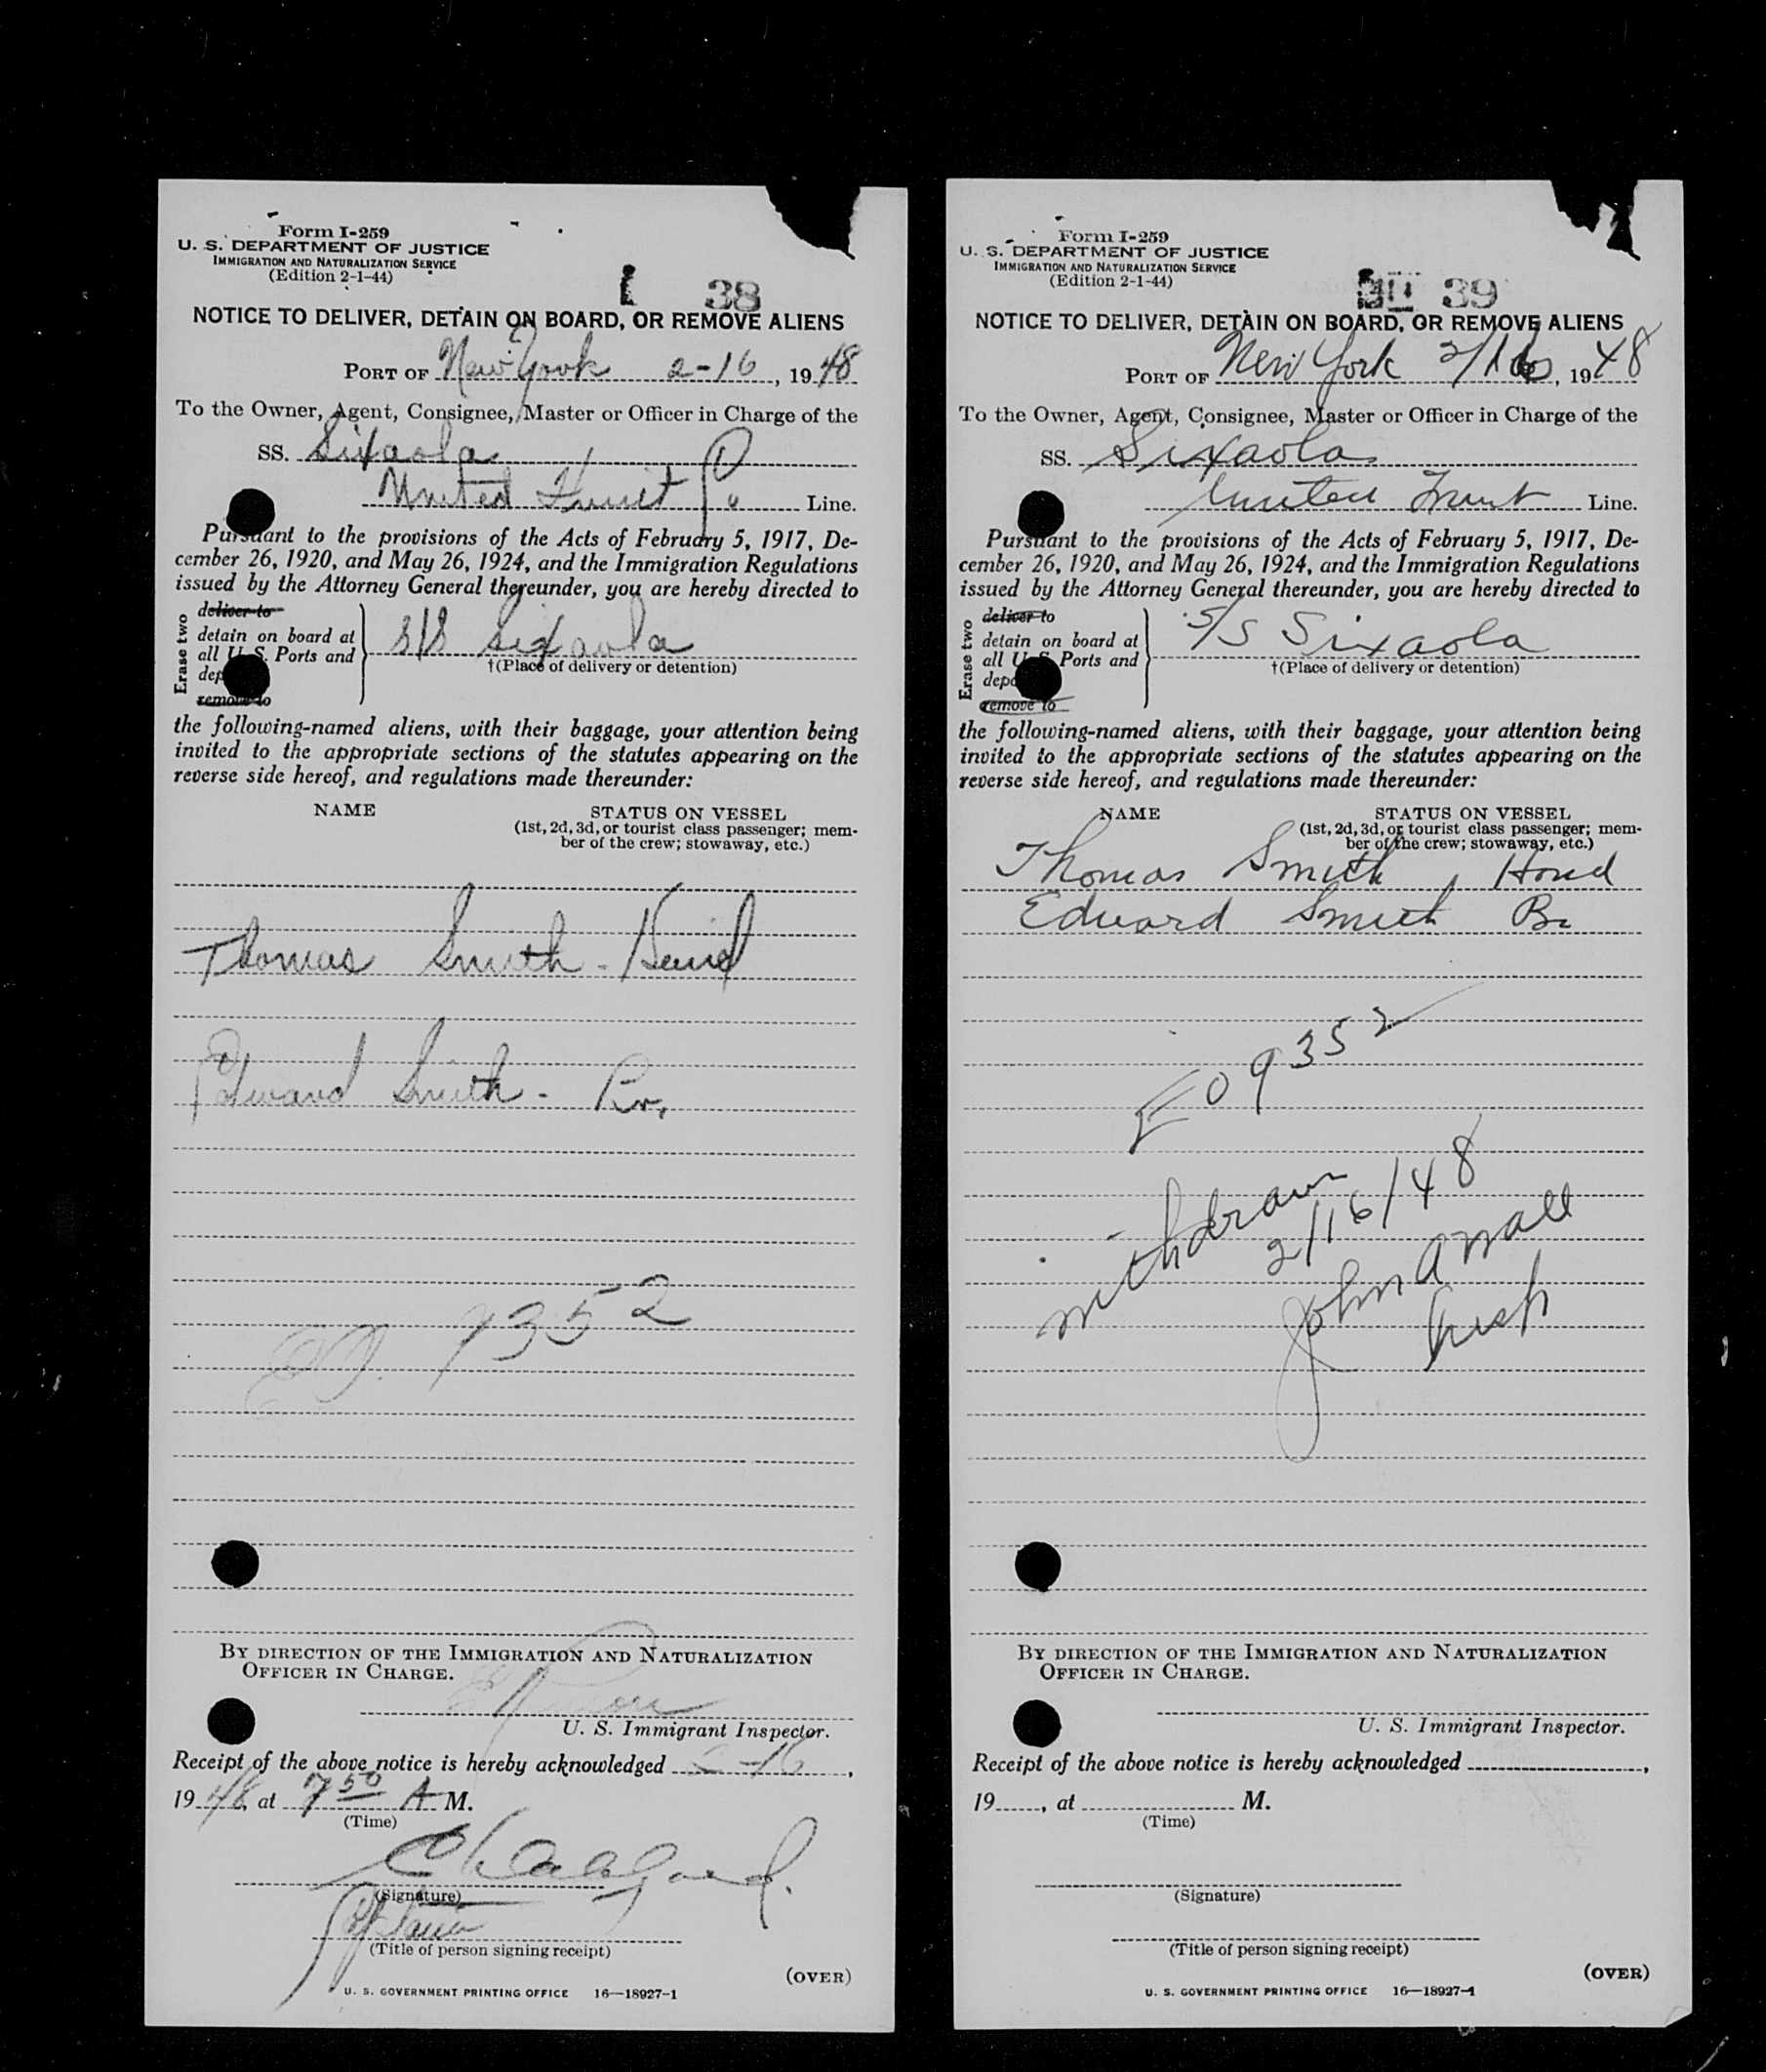 Form I-259
U. S. DEPARTMENT OF JUSTICE
IMMIGRATION AND NATURALIZATION SERVICE
(Edition 2-1-44)
38
NOTICE TO DELIVER, DETAIN ON BOARD, OR REMOVE ALIENS
PORT OF New York 2-16, 1948
To the Owner, Agent, Consignee, Master or Officer in Charge of the
SS. Sixaola
United Fruit Co Line.
Pursuant to the provisions of the Acts of February 5, 1917, De-
cember 26, 1920, and May 26, 1924, and the Immigration Regulations
issued by the Attorney General thereunder, you are hereby directed to
Erase two
deliver to
detain on board at
all U. S. Ports and
dep
remove to
S/S Sixaola
†(Place of delivery or detention)
the following-named aliens, with their baggage, your attention being
invited to the appropriate sections of the statutes appearing on the
reverse side hereof, and regulations made thereunder:
NAME
STATUS ON VESSEL
(1st, 2d, 3d, or tourist class passenger; mem-
ber of the crew; stowaway, etc.)
Thomas Smith - Hond
Edward Smith - Br.
9352
BY DIRECTION OF THE IMMIGRATION AND NATURALIZATION
OFFICER IN CHARGE.
U. S. Immigrant Inspector.
Receipt of the above notice is hereby acknowledged 2-16,
1948, at 7 50 A M.
(Time)
(Signature)
(Title of person signing receipt)
(OVER)
U. S. GOVERNMENT PRINTING OFFICE 16—18927-1
Form I-259
U. S. DEPARTMENT OF JUSTICE
IMMIGRATION AND NATURALIZATION SERVICE
(Edition 2-1-44)
39
NOTICE TO DELIVER, DETAIN ON BOARD, OR REMOVE ALIENS
PORT OF New York 2/16, 1948
To the Owner, Agent, Consignee, Master or Officer in Charge of the
SS. Sixaola
United Fruit Line.
Pursuant to the provisions of the Acts of February 5, 1917, De-
cember 26, 1920, and May 26, 1924, and the Immigration Regulations
issued by the Attorney General thereunder, you are hereby directed to
Erase two
deliver to
detain on board at
all U. S. Ports and
depo
remove to
S/S Sixaola
†(Place of delivery or detention)
the following-named aliens, with their baggage, your attention being
invited to the appropriate sections of the statutes appearing on the
reverse side hereof, and regulations made thereunder:
NAME
STATUS ON VESSEL
(1st, 2d, 3d, or tourist class passenger; mem-
ber of the crew; stowaway, etc.)
Thomas Smith Hond
Edward Smith Br
E09352
withdrawn
2/16/48
John A Wall
Insp
BY DIRECTION OF THE IMMIGRATION AND NATURALIZATION
OFFICER IN CHARGE.
U. S. Immigrant Inspector.
Receipt of the above notice is hereby acknowledged
19, at M.
(Time)
(Signature)
(Title of person signing receipt)
(OVER)
U. S. GOVERNMENT PRINTING OFFICE 16—18927-1